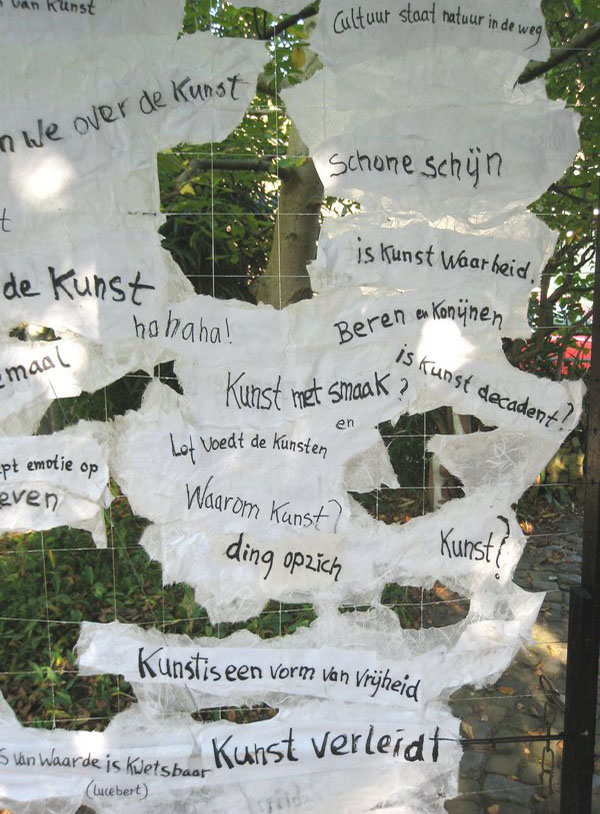 van Kunst
Cultuur staat natuur in de weg
we over de Kunst
Schone schijn
de Kunst
is Kunst Waarheid.
hahaha!
Beren en Konijnen
is Kunst decadent?
Kunst met smaak?
en
Lof voedt de Kunsten
emotie op
Waarom Kunst?
Kunst?
ding opzich
Kunst is een vorm van Vrijheid
van Waarde is Kwetsbaar
(Lucebert)
Kunst verleidt